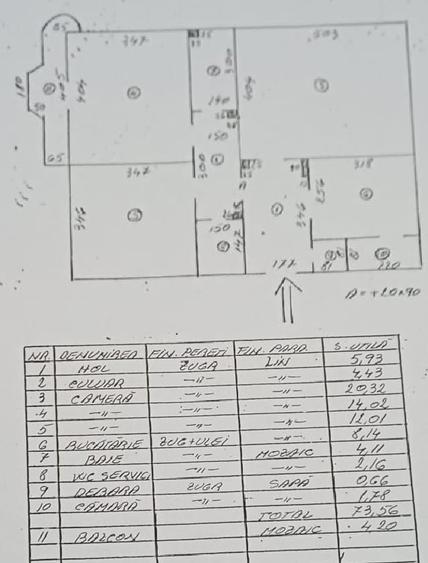 65
347
503
180
405
404
300
404
140
50
150
65
347
300
318
256
346
346
150
142
177
81
120
A = +20x90
NR. DENUMIREA FIN. PERETI FIN. PARD. S. UTILĂ
1 HOL ZUGR LIN 5,93
2 CULOAR -"- -"- 4,43
3 CAMERĂ -"- -"- 20,32
4 -"- -"- -"- 14,02
5 -"- -"- -"- 12,01
6 BUCATARIE ZUG+ULEI -"- 8,14
7 BAIE -"- MOZAIC 4,11
8 WC SERVICI -"- -"- 2,16
9 DEBARA ZUGR SAPĂ 0,66
10 CĂMARĂ -"- -"- 1,78
TOTAL 73,56
11 BALCON MOZAIC 4,20